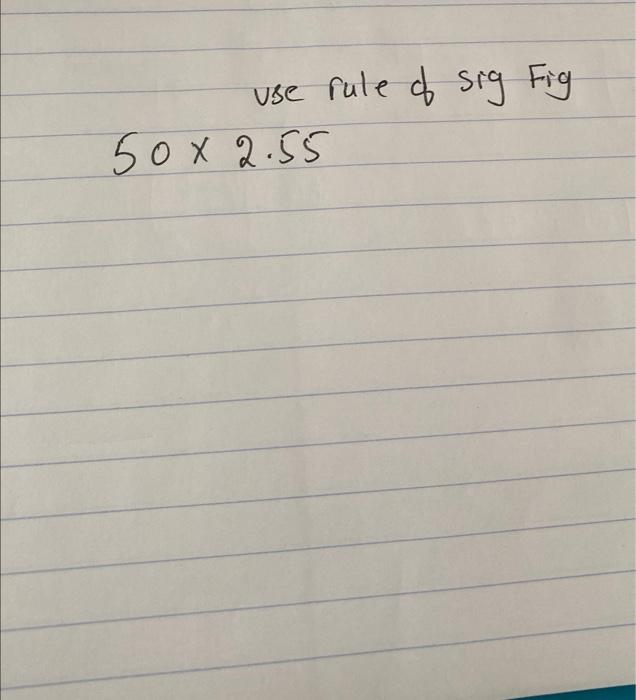 use rule of sig Fig
50 x 2.55